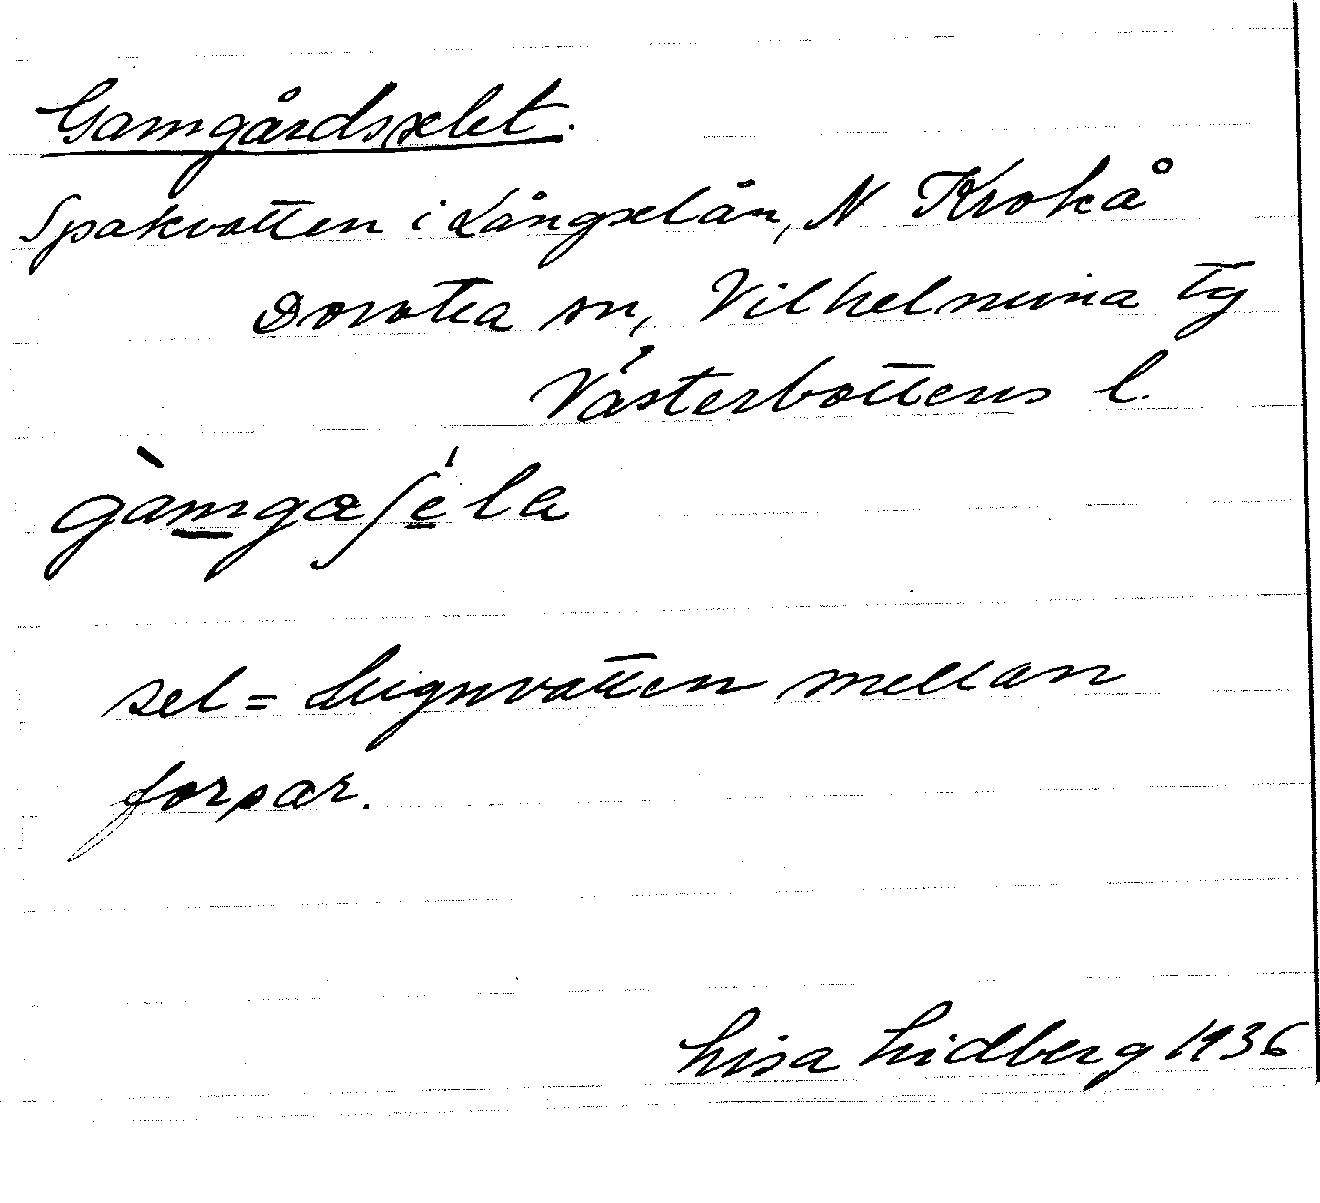 Gamgårdsselet.
Spakvatten i Långselån, N Krokå
Dorotea sn, Vilhelmina tg
Västerbottens l.
gàmgaſéla
sel = lugnvatten mellan
forsar.
Lisa Lidberg 1936